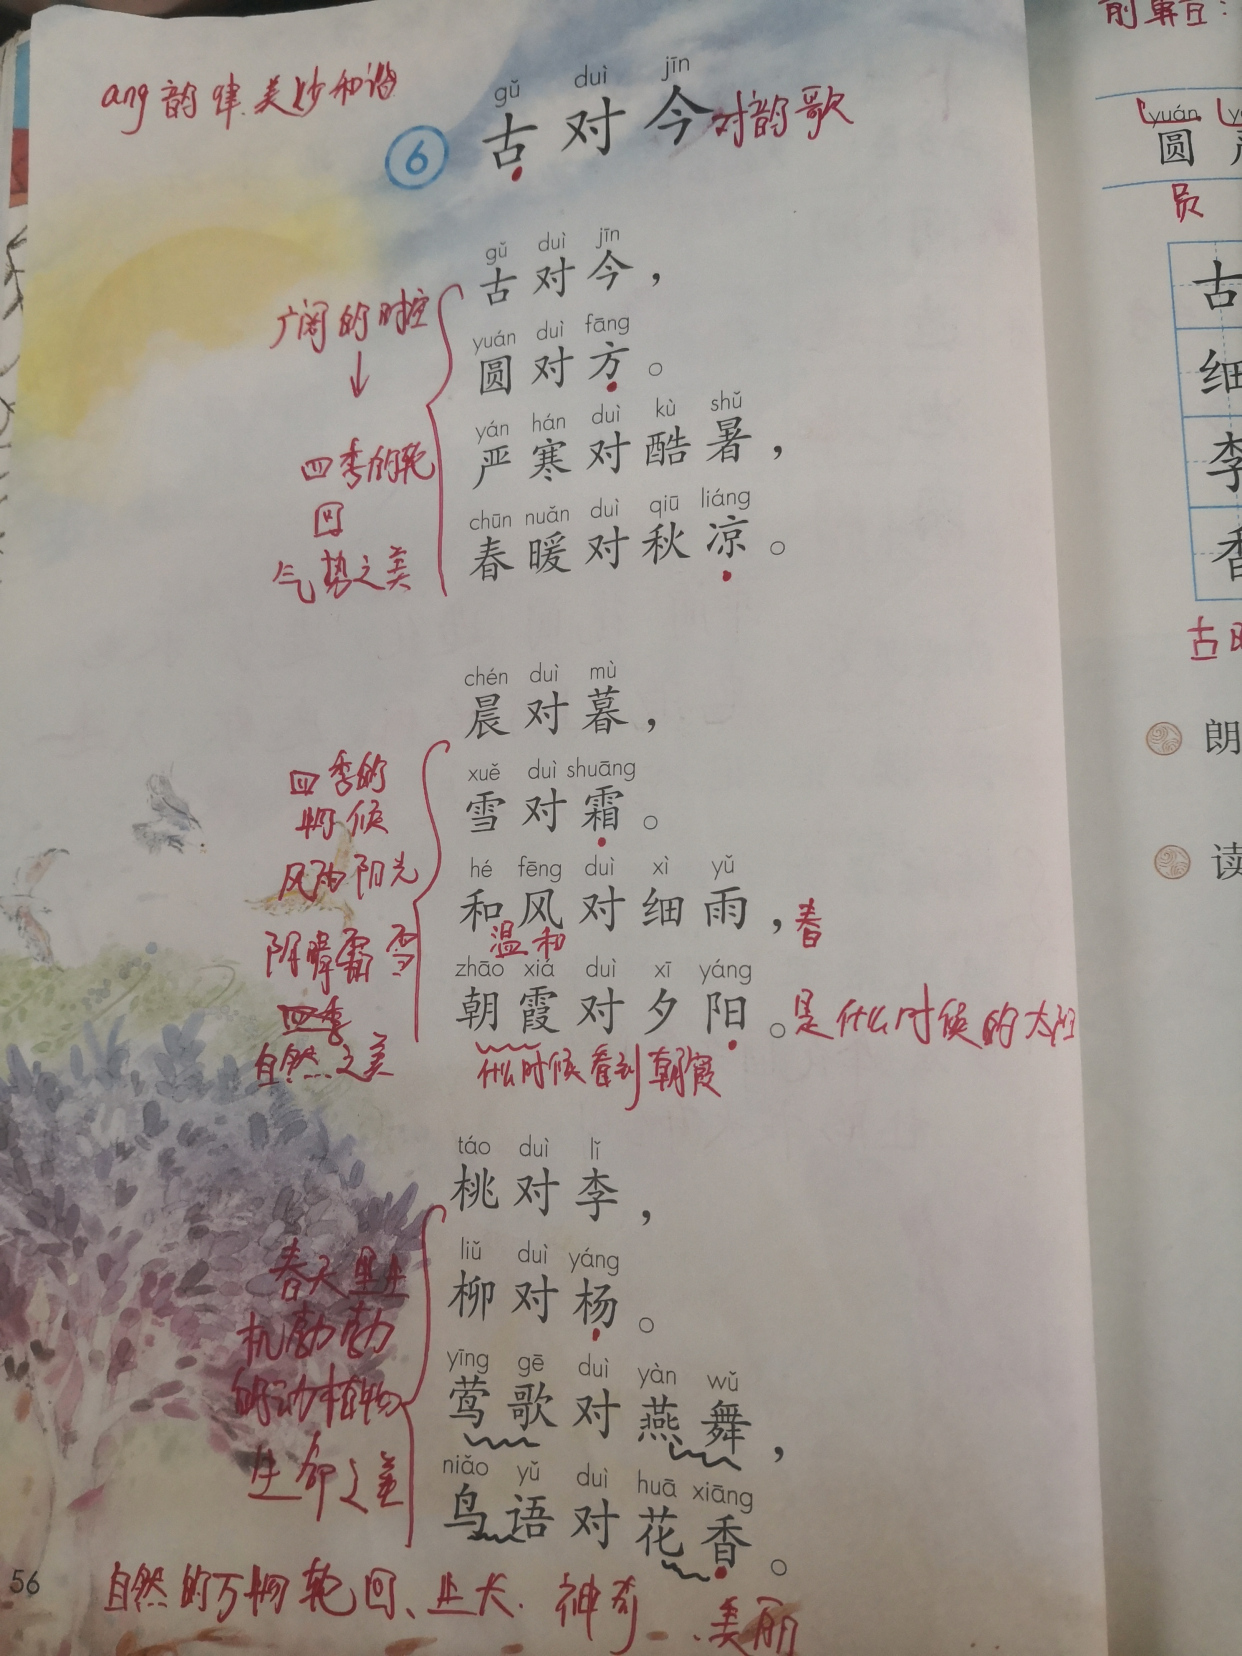 ang 韵律美妙和谐
gǔ duì jīn
6 古对今 对韵歌
gǔ duì jīn
古对今，
广阔的时空
yuán duì fāng
圆对方。
↓
yán hán duì kù shǔ
严寒对酷暑，
四季的轮
回
chūn nuǎn duì qiū liáng
春暖对秋凉。
气势之美
chén duì mù
晨对暮，
四季的
物候
xuě duì shuāng
雪对霜。
风雨阳光
hé fēng duì xì yǔ
和风对细雨，春
温和
阴晴霜雪
zhāo xiá duì xī yáng
朝霞对夕阳。是什么时候的太阳
四季
自然之美
什么时候看到朝霞
táo duì lǐ
桃对李，
liǔ duì yáng
柳对杨。
春天里生
机勃勃
的动植物
yīng gē duì yàn wǔ
莺歌对燕舞，
生命之美
niǎo yǔ duì huā xiāng
鸟语对花香。
56
自然的万物轮回、生长、神奇、美丽
yuán
圆
员
古
细
李
香
古
朗
读